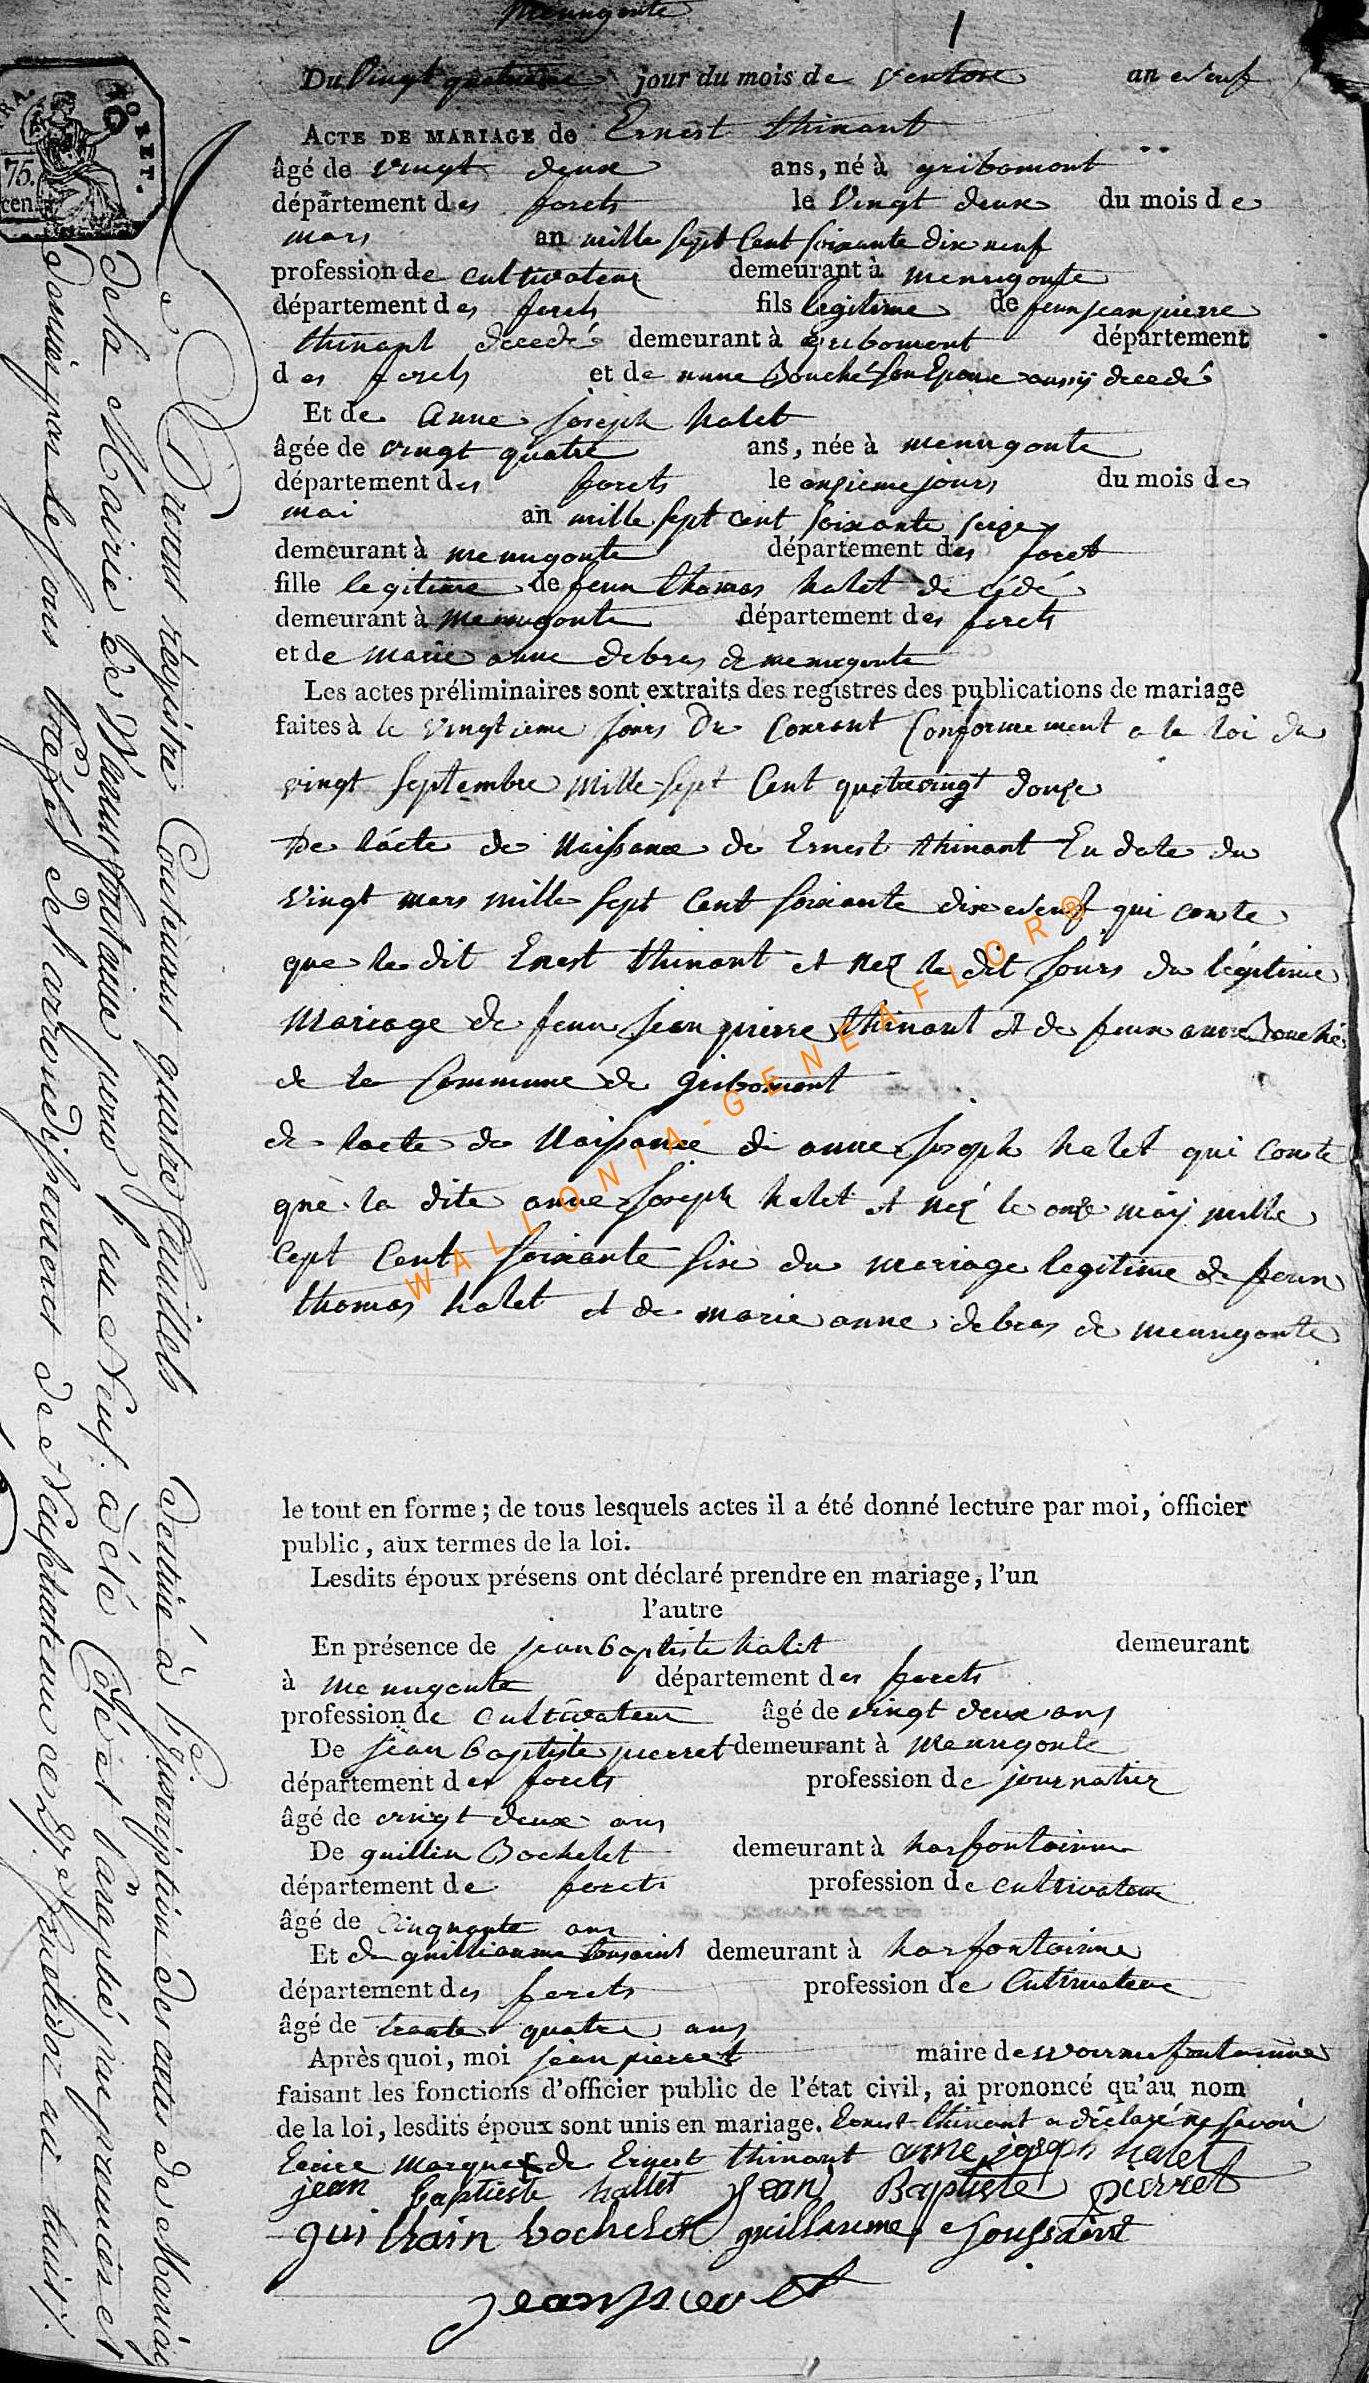 menugoute
1
Du Vingt quatrieme jour du mois de ventose an neuf
ACTE DE MARIAGE de Ernest thinant
âgé de vingt deux ans, né à gribomont
département des forets le Vingt deux du mois de
mars an mille sept Cent soixante dix neuf
profession de cultivateur demeurant à menugoute
département des forets fils legitime de feu jean pierre
thinant decedé demeurant à gribomont département
des forets et de anne Bouché son Epouse aussÿ decedé
Et de Anne joseph halet
âgée de vingt quatre ans, née à menugoute
département des forets le onzieme jours du mois de
mai an mille sept cent soixante seize
demeurant à menugoute département des foret
fille legitime de feu thomas halet decédé
demeurant à menugoute département des forets
et de marie anne debras de menugoute
Les actes préliminaires sont extraits des registres des publications de mariage
faites à le vingtieme jours Du Courant Conformement a la loi du
vingt septembre Mille sept Cent quatrevingt douze
De lácte de Naissance de Ernest thinant En date du
vingt mars mille sept Cent soixante dix neuf qui conste
que le dit Ernest thinant et nez le dit jours du légitime
mariage de feu jean pierre thinant et de feux anne Bouché
de la Commune de gribomont
de lacte de Naissance de anne joseph halet qui Conste
que la dite anne joseph halet et néz le onze mäÿ mille
cept Cent soixante sixe du mariage legitime de feu
thomas halet et de marie anne debras de menugoute
le tout en forme; de tous lesquels actes il a été donné lecture par moi, officier
public, aux termes de la loi.
Lesdits époux présens ont déclaré prendre en mariage, l'un
l'autre
En présence de jean baptiste halet demeurant
à menugoute département des forets
profession de Cultivateur âgé de vingt deux ans
De jean baptiste pierret demeurant à menugoute
département des forets profession de journalier
âgé de vingt deux ans
De guillin Bochelet demeurant à harfontainne
département de forets profession de cultivateur
âgé de Cinquante ans
Et de guilliaume tousaint demeurant à harfontainne
département des forets profession de Cultivateur
âgé de trante quatre ans
Après quoi, moi jean pierret maire de
faisant les fonctions d'officier public de l'état civil, ai prononcé qu'au nom
de la loi, lesdits époux sont unis en mariage. Ernest thinant a déclaré ne savoir
Ecrire marque de Ernest thinant anne joseph halet
jean baptiste hallet jean Baptiste pierret
guilhain bochelet guillaume toussaint
jean pierret
75.
cen.
Le Présent régistre Contenant quatre feuillets Destiné à l'Inscription des actes de Mariage
de la Mairie de pour l'an Neuf. à été Côté et Paraphé par premier et
dernier par le sous Préfet de l'arrondissement de Neufchateau ce
WALLONIA-GENEAFLOR®